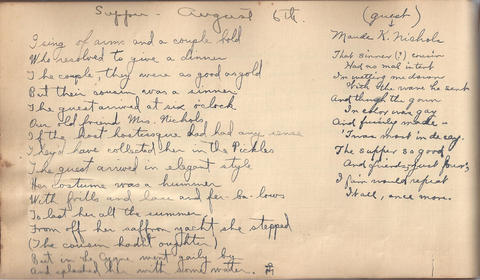 Supper - August 6th.
I sing of arms and a couple bold
Who resolved to give a dinner
The couple, they were as good as gold
But their cousin was a sinner.
The guest arrived at six o'clock
Our old friend Mrs. Nichols
If the host hostesque had had any sense
They'd have collected her in the Pickles
The guest arrived in elegant style
Her costume was a hummer
With frills and lace and fur-be-lows
To last her all the summer
From off her saffron yacht she stepped
(The cousin hadn't oughter)
But in Le Cygne went gaily by
And splashed her with some water.
(guest)
Maude K. Nichols
That sinner (?) cousin
Had no mal intent
In wetting me down
With the wave he sent
And though the gown
In color was gay
And finely made -
'Twas most in decay.
The supper so good
And friends just four,
I fain would repeat
It all, once more.